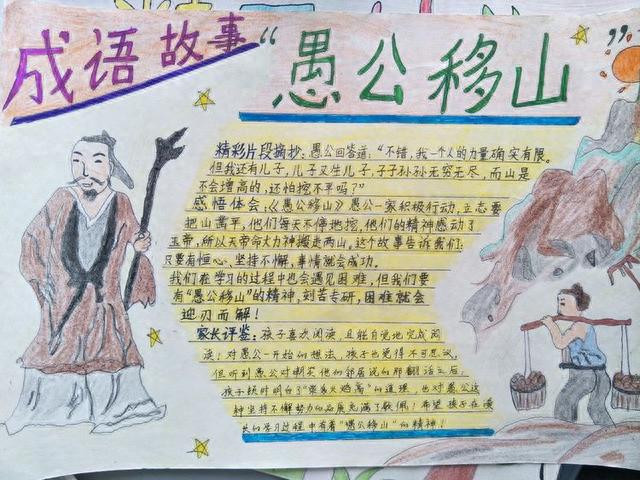 成语故事“愚公移山”
精彩片段摘抄：愚公回答道：“不错，我一个人的力量确实有限。
但我还有儿子，儿子又生儿子，子子孙孙无穷无尽，而山是
不会增高的，还怕挖不平吗？”
感悟体会：《愚公移山》愚公一家积极行动，立志要
把山凿平，他们每天不停地挖，他们的精神感动了
玉帝，所以天帝命大力神搬走两山，这个故事告诉我们：
只要有恒心、坚持不懈，事情就会成功。
我们在学习的过程中也会遇见困难，但我们要
有“愚公移山”的精神，刻苦专研，困难就会
迎刃而解！
家长评鉴：孩子喜欢阅读，且能自觉地完成阅
读！对愚公一开始的想法，孩子也觉得不可思议，
但听到愚公对嘲笑他的邻居说的那翻话之后，
孩子顿时明白了“柴多火焰高”的道理，也对愚公这
种坚持不懈努力的品质充满了敬佩！希望孩子在漫
长的学习过程中有着“愚公移山”的精神！